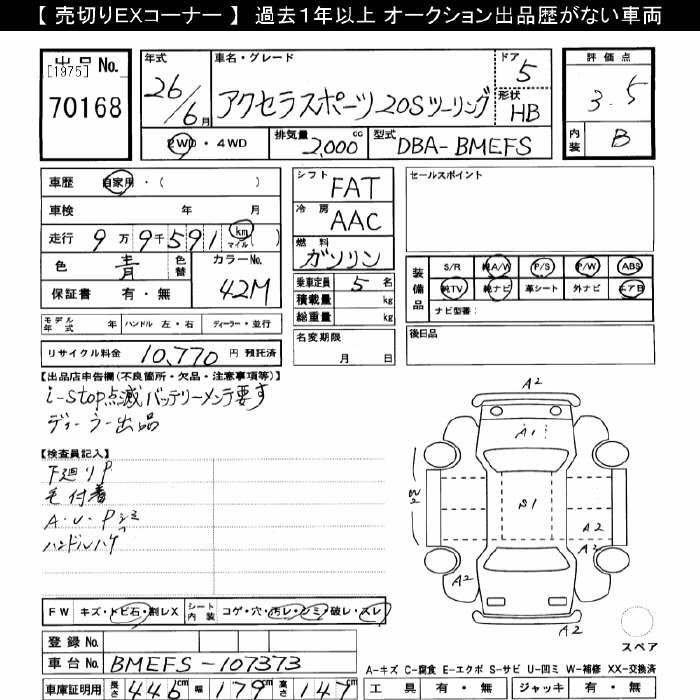 【 売切りEXコーナー 】 過去1年以上 オークション出品歴がない車両
出品 No.
[1975]
70168
年式
26/6月
車名・グレード
アクセラスポーツ 20Sツーリング
ドア
5
形状
HB
2WD・4WD
排気量
2,000 cc
型式
DBA-BMEFS
評価点
3.5
内装
B
車歴 自家用・( )
車検 年 月
走行 9万9千591 km マイル ( )
色 青 色替 カラーNo.
42M
保証書 有・無
モデル年式 年 ハンドル 左・右 ディーラー・並行
リサイクル料金 10,770 円 預託済
シフト FAT
冷房 AAC
燃料 ガソリン
乗車定員 5 名
積載量 kg
総重量 kg
名変期限
月 日
セールスポイント
装備品
S/R 純A/W P/S P/W ABS
純TV 純ナビ 革シート 外ナビ エアB
ナビ型番:
後日品
【出品店申告欄(不良箇所・欠品・注意事項等)】
i-stop点滅バッテリーメンテ要す
ディーラー出品
【検査員記入】
下廻りP
毛付着
A・U・Pシミ
ハンドルハゲ
FW キズ・トビ石・割レX シート内装 コゲ・穴・汚レ・シミ・破レ・スレ
登録 No.
車台 No. BMEFS-107373
車庫証明用 長さ 446 cm 幅 179 cm 高さ 147 cm
A2
A1
W2
S1
A2
A2
A2
A2
A2
スペア
A-キズ C-腐食 E-エクボ S-サビ U-凹ミ W-補修 XX-交換済
工具 有・無 ジャッキ 有・無